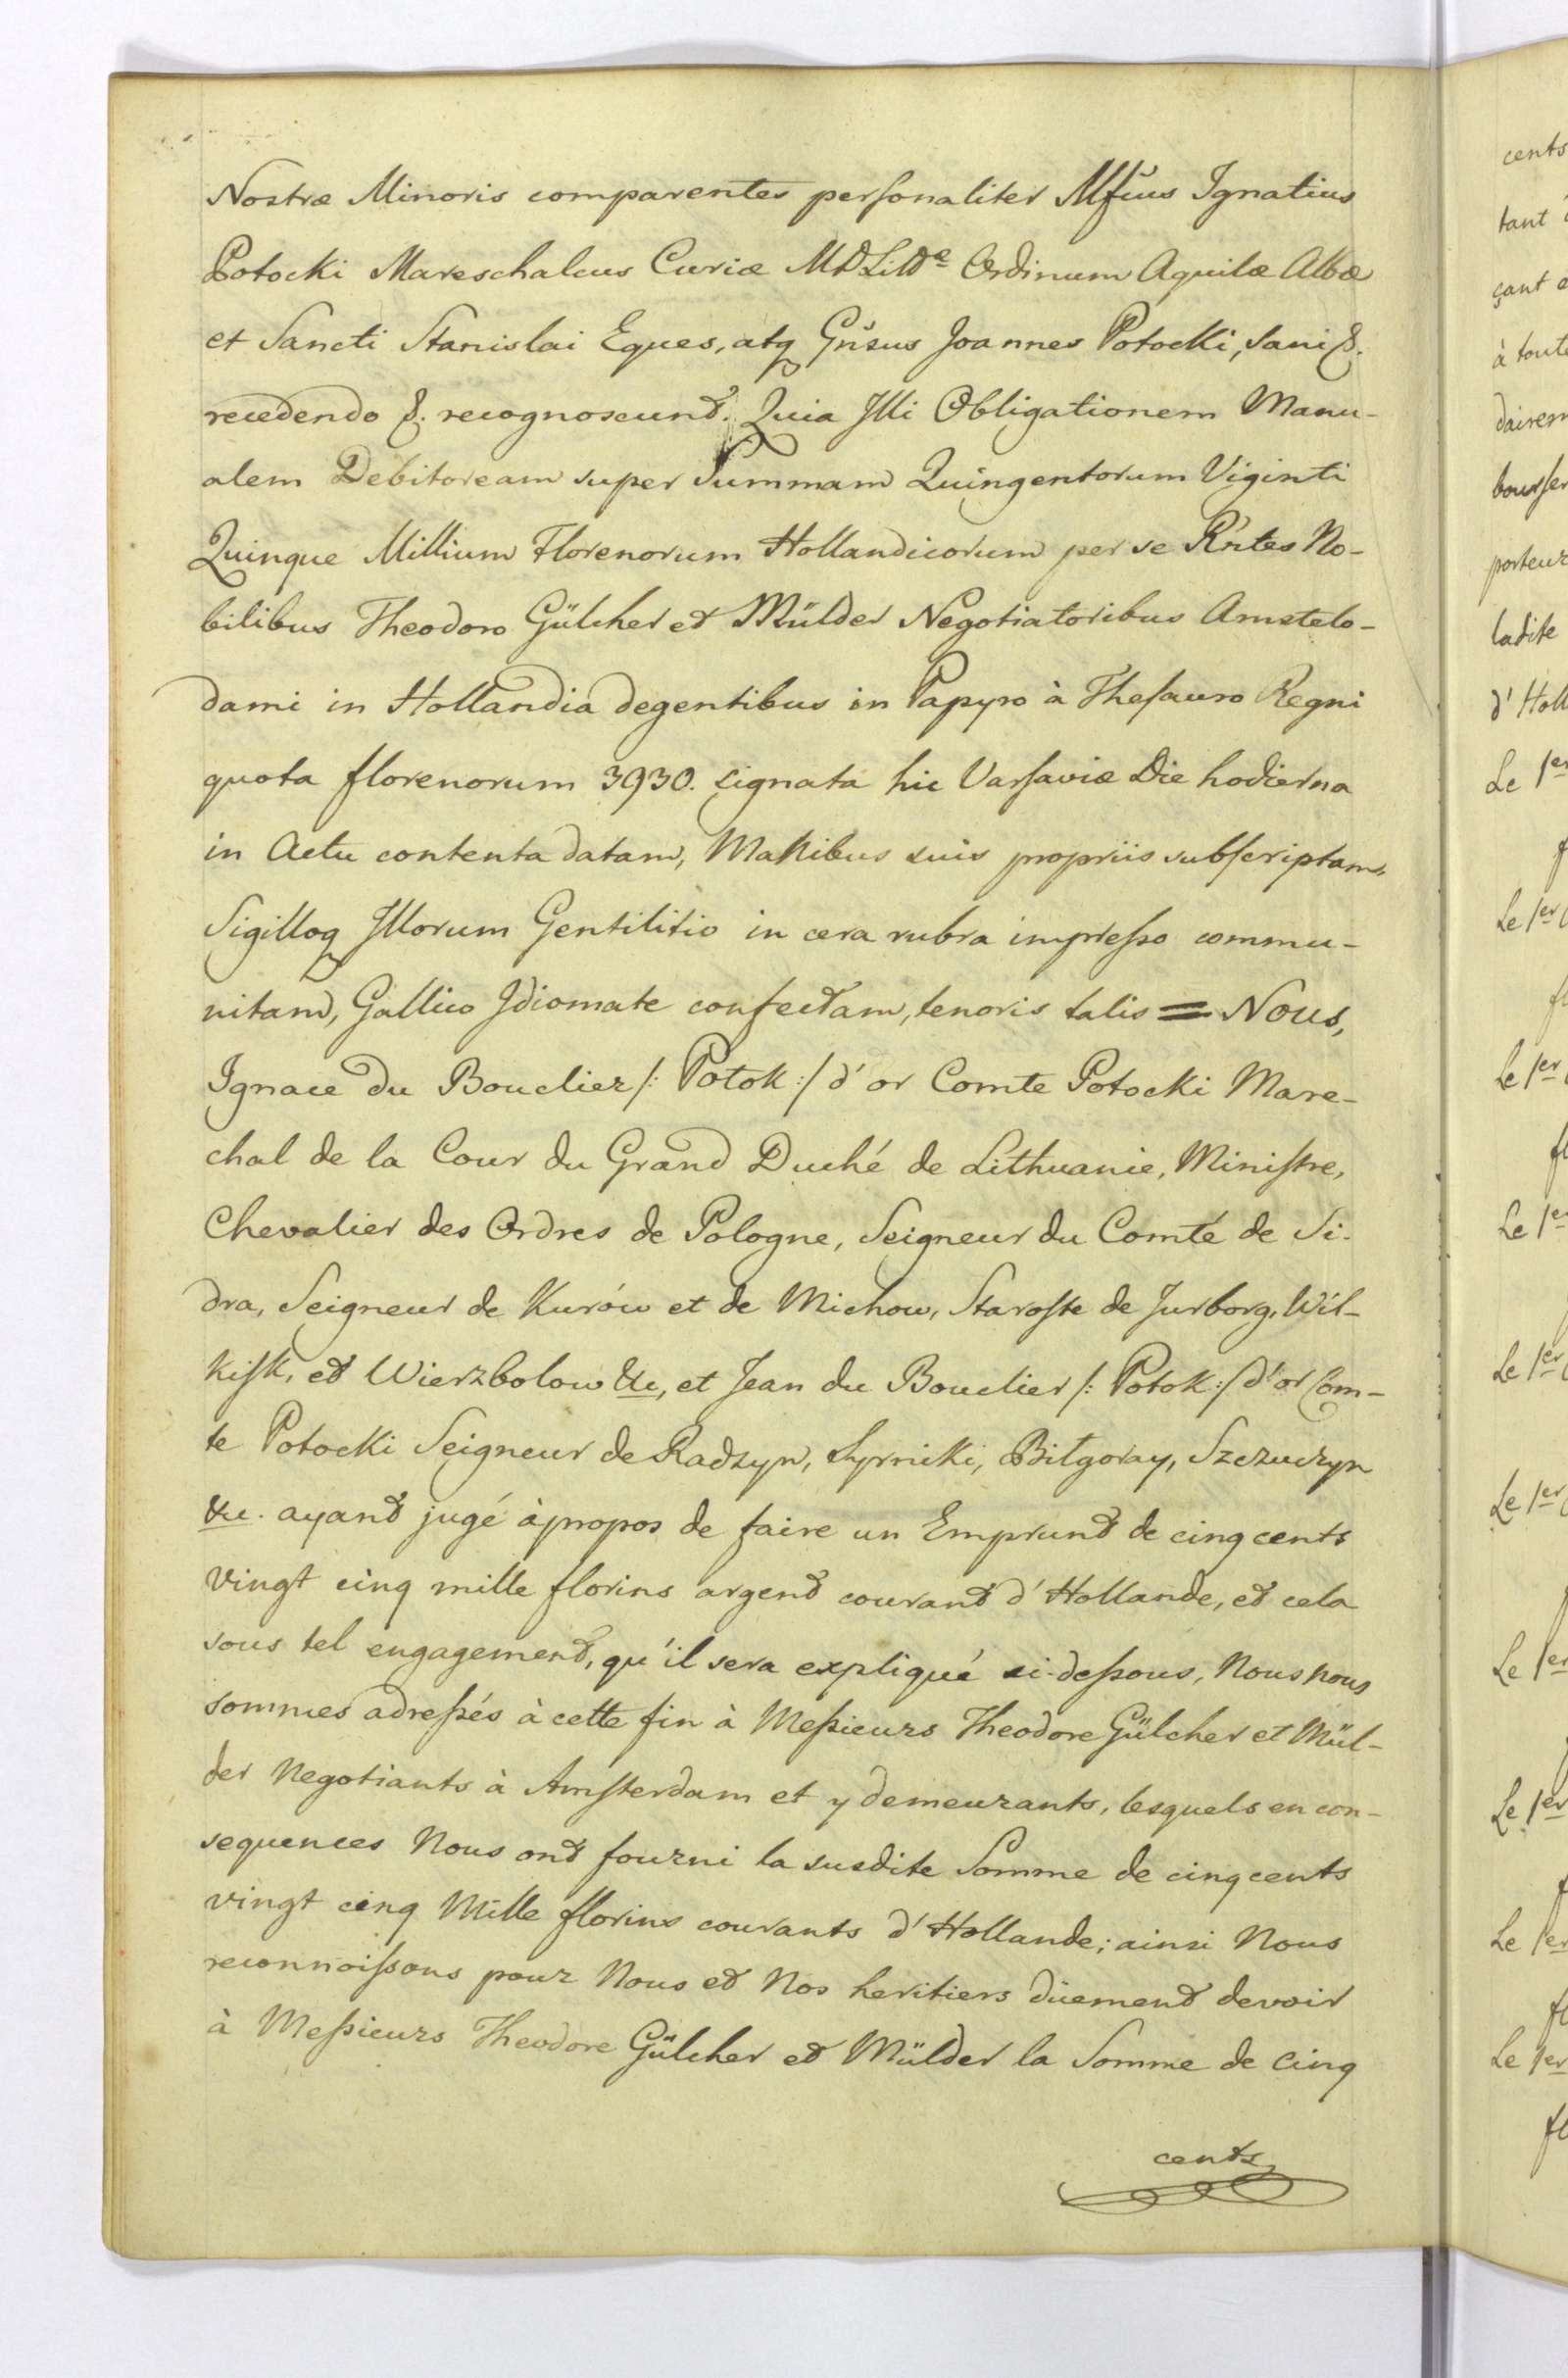 Nostræ Minoris comparentes personaliter Mfcus Ignatius
Potocki Mareschalcus Curiæ MDLitdæ Ordinum Aquilæ Albæ
et Sancti Stanislai Eques, atq Gnsus Joannes Potocki, sani &.
recedendo &. recognoscunt. Quia Illi Obligationem Manu-
alem Debitoream super Summam Quingentorum Viginti
Quinque Millium Florenorum Hollandicorum per se Rntes No-
bilibus Theodoro Gülcher et Mülder Negotiatoribus Amstelo-
dami in Hollandia degentibus in Papyro à Thesauro Regni
quota florenorum 3930. signata hic Varsaviæ Die hodierna
in Actu contenta datam, Manibus suis propriis subscriptam,
Sigilloq Illorum Gentilitio in cera rubra impresso commu-
nitam, Gallico Idiomate confectam, tenoris talis = Nous,
Ignace du Bouclier /: Potok :/ d'or Comte Potocki Mare-
chal de la Cour du Grand Duché de Lithuanie, Ministre,
Chevalier des Ordres de Pologne, Seigneur du Comté de Si-
dra, Seigneur de Kurów et de Michow, Staroste de Jurborg, Wil-
kisk, et Wierzbolow &c, et Jean du Bouclier /: Potok :/ d'or Com-
te Potocki Seigneur de Radzyn, Syrniki, Biłgoray, Szczuczyn
&c. ayant jugé àpropos de faire un Emprunt de cinq cents
vingt cinq mille florins argent courant d'Hollande, et cela
sous tel engagement, qu'il sera expliqué ci-dessous, Nous nous
sommes adressés à cette fin à Messieurs Theodore Gülcher et Mül-
der Negotiants à Amsterdam et y demeurants, lesquels en con-
sequences Nous ont fourni la susdite Somme de cinq cents
vingt cinq Mille florins courants d'Hollande; ainsi Nous
reconnoissons pour Nous et Nos heritiers düement devoir
à Messieurs Theodore Gülcher et Mülder la Somme de Cinq
cents
cents
tant
çant
à toute
dairem
bourser
porteur
ladite
d'Holl
Le 1er
Le 1er
Le 1er
Le 1er
Le 1er
Le 1er
Le 1er
Le 1er
Le 1er
Le 1er